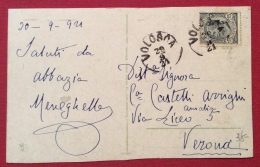 30-9-921
Saluti da
abbazia
Meneghelli
VOLOSCA
29
21
VOLO
Dist Signora
Castelli Arrighi
Amalia
Via Liceo 5
Verona